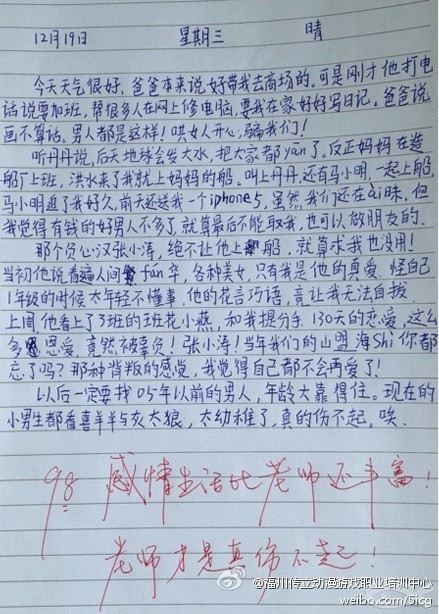 12月19日 星期三 晴
今天天气很好，爸爸本来说好带我去商场的。可是刚才他打电
话说要加班，帮很多人在网上修电脑，要我在家好好写日记。爸爸说
画不算话。男人都是这样！哄女人开心，骗我们！
听丹丹说，后天地球会发大水，把大家都yān了。反正妈妈在造
船厂上班，洪水来了我就上妈妈的船。叫上丹丹还有马小明，一起上船，
马小明追了我好久，前天还送我一个iphone5，虽然我们还在ài昧，但
我觉得有钱的好男人不多了，就算最后不能取我，也可以做朋友的。
那个负心汉张小涛，绝不让他上船，就算求我也没用！
当初他说看遍人间fán华，各种美女，只有我是他的真爱。怪自己
1年级的时候太年轻不懂事，他的花言巧语，竟让我无法自拔。
上周，他看上了3班的班花小燕，和我提分手。130天的恋爱，这么
多恩爱，竟然被辜负！张小涛！当年我们的山盟海Shì你都
忘了吗？那种背叛的感觉，我觉得自己都不会再爱了！
以后一定要找05年以前的男人，年龄大靠得住。现在的
小男生都看喜羊羊与灰太狼，太幼稚了，真的伤不起，唉。
98 感情生活比老师还丰富！
老师才是真伤不起！
@福州传立动漫游戏职业培训中心
weibo.com/5icg